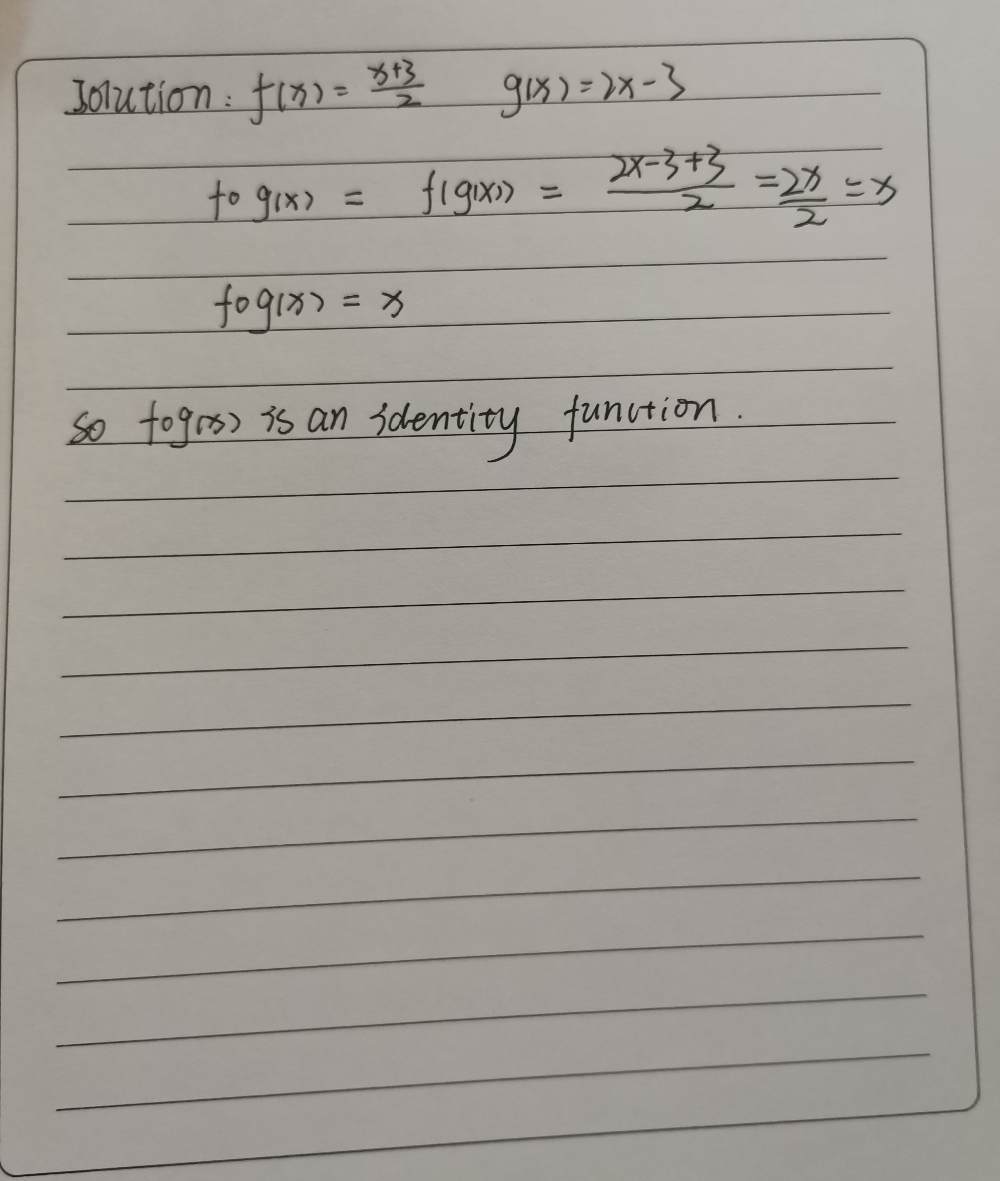 Solution: f(x) = x+3/2 g(x) = 2x-3
fog(x) = f(g(x)) = 2x-3+3/2 = 2x/2 = x
fog(x) = x
so fog(x) is an identity function.